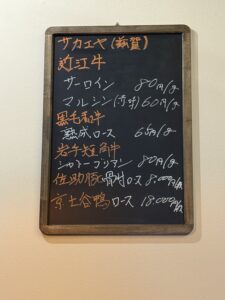 サカエヤ(滋賀)
近江牛
サーロイン 80円/g
マルシン(芯)60円/g
黒毛和牛
熟成ロース 65円/g
岩手短角牛
シャトーブリアン 80円/g
佐助豚骨付ロース 8,000円/kg
京土谷鴨ロース 18,000円/kg